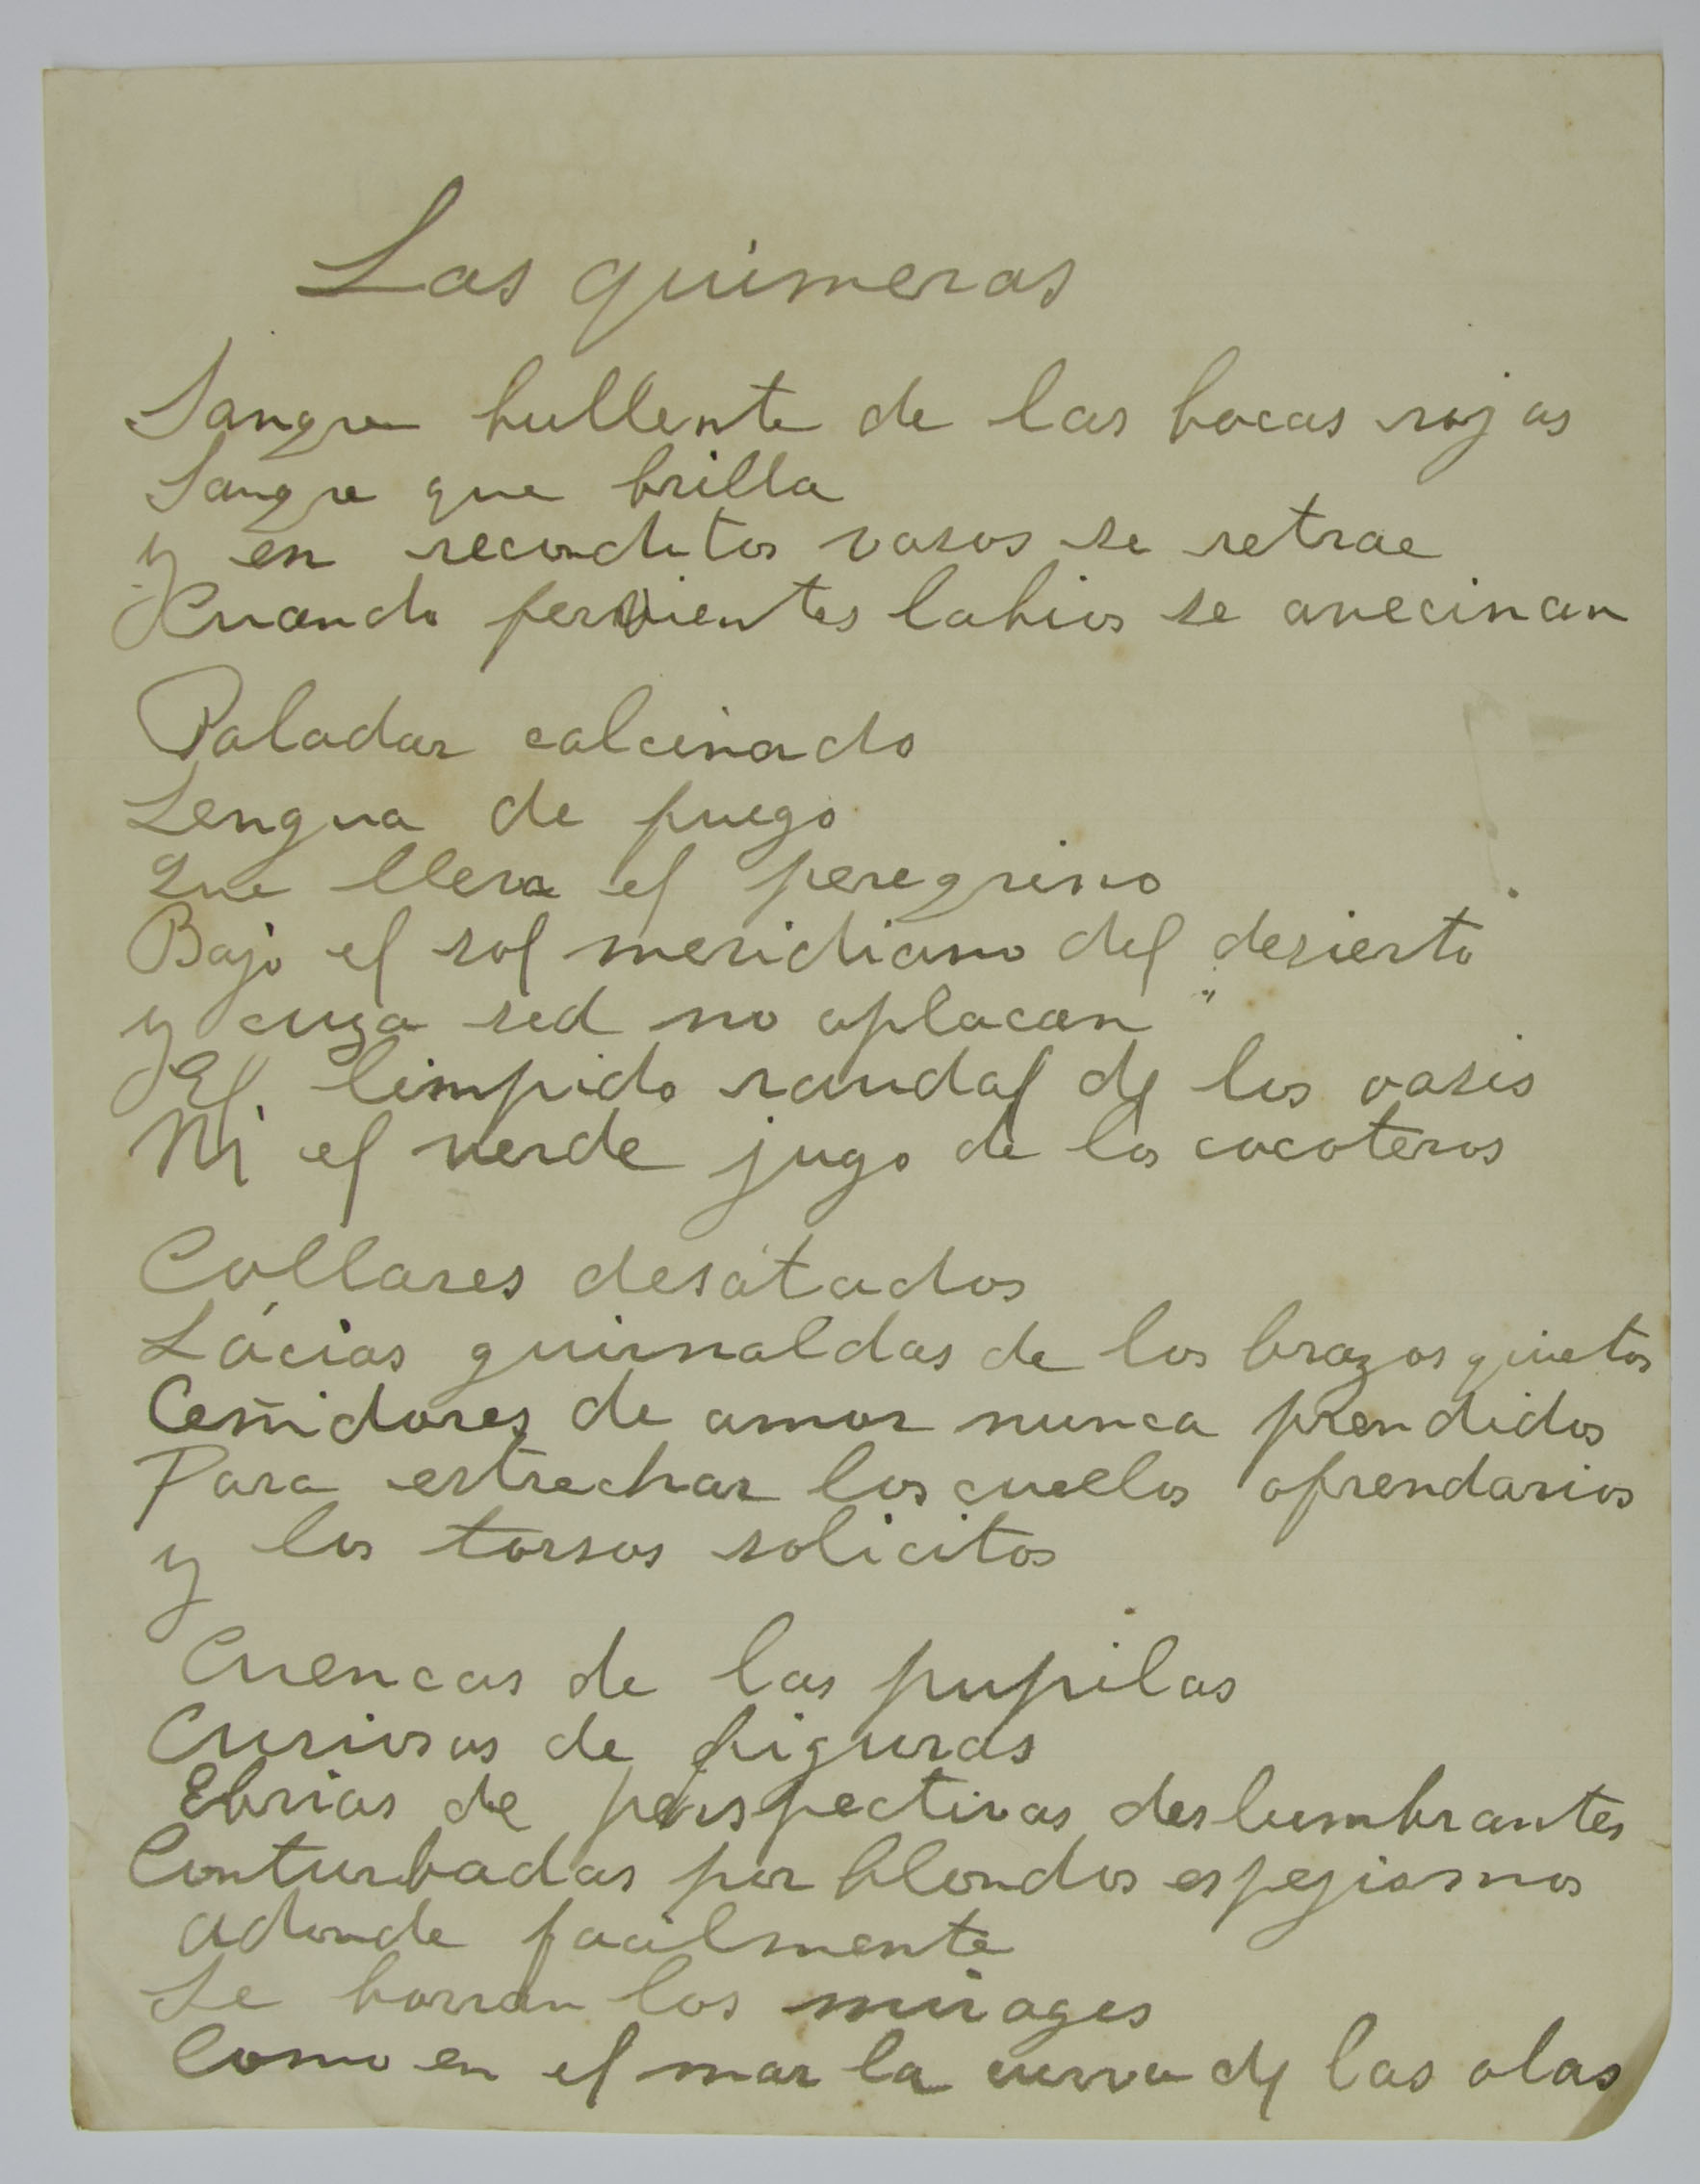 Las quimeras
Sangre bullente de las bocas rojas
Sangre que brilla
y en reconditos vasos se retrae
Cuando fervientes labios se avecinan
Paladar calcinado
Lengua de fuego
Que lleva el peregrino
Bajo el sol meridiano del desierto
y cuya sed no aplacan
El limpido raudal de los oasis
Ni el verde jugo de los cocoteros
Collares desatados
Lácias guirnaldas de los brazos quietos
Ceñidores de amor nunca prendidos
Para estrechar los cuellos ofrendarios
y los torsos solicitos
Cuencas de las pupilas
Curiosas de figuras
Ebrias de perspectivas deslumbrantes
Conturbadas por blondos espejismos
adonde facilmente
Se borran los mirages
Como en el mar la curva de las olas